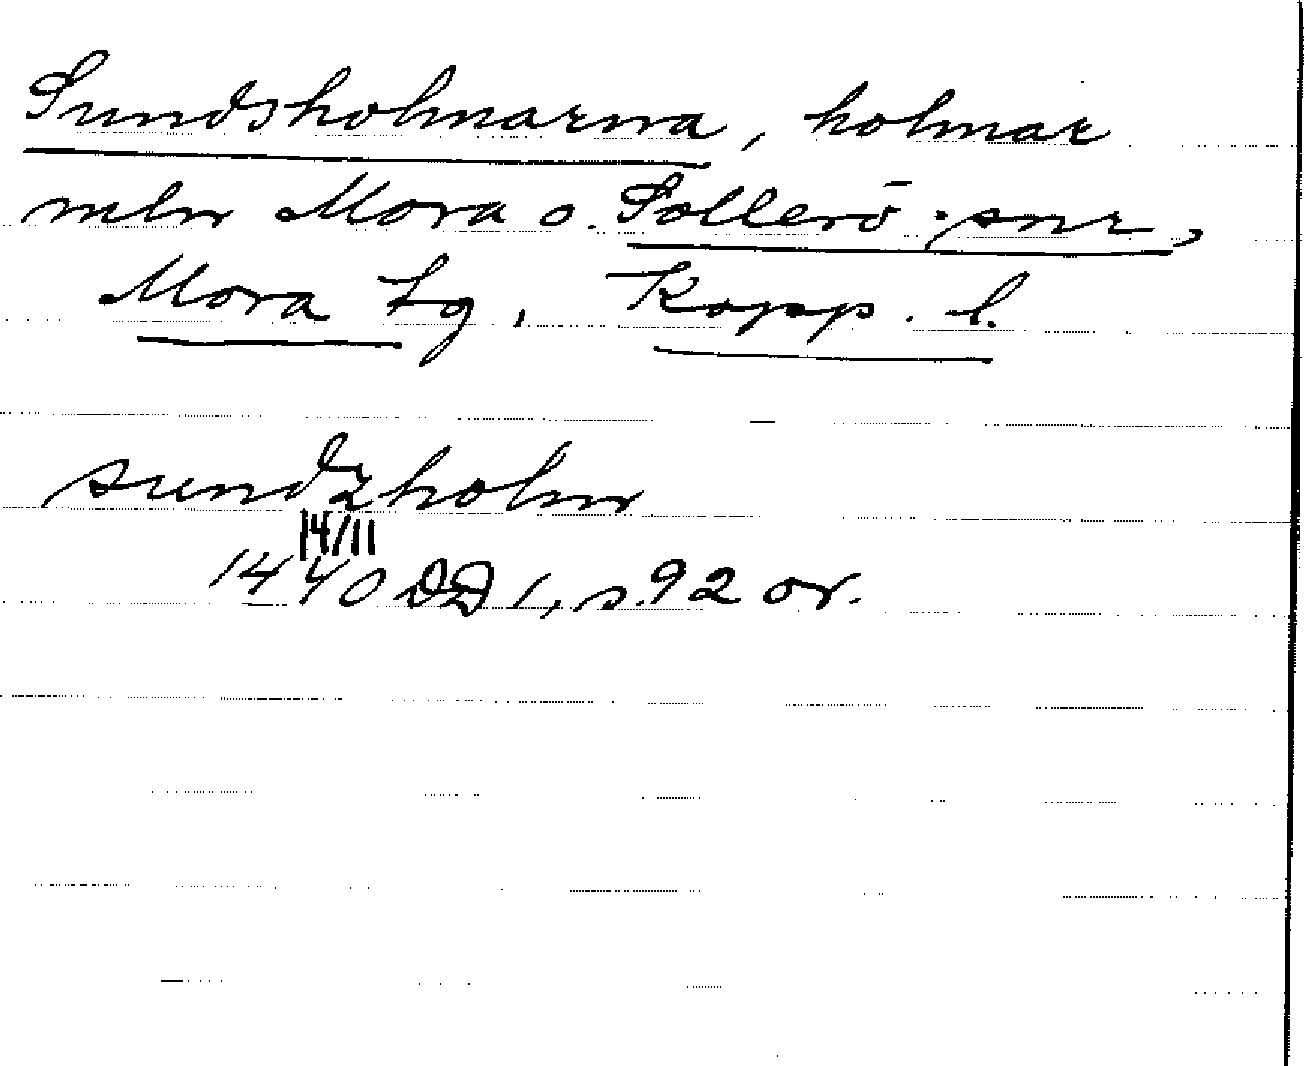 Sundsholmarna, holmar
mln Mora o. Sollerö snr,
Mora tg, Kopp. l.
sundzholm
14/11
1440 DD 1, s. 92 or.